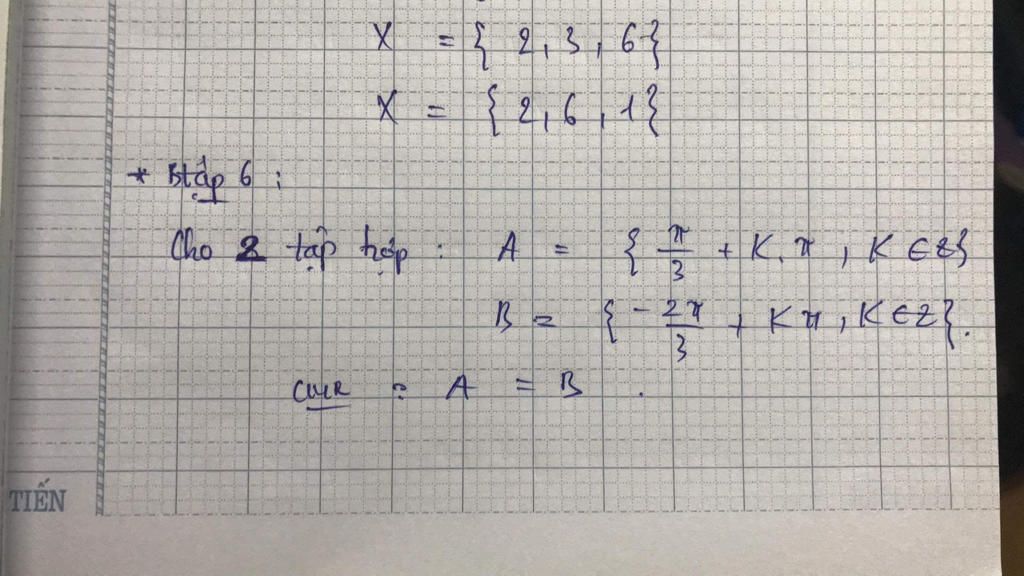 X = { 2, 3, 6 }
X = { 2, 6, 1 }
* Btập 6 :
Cho 2 tập hợp : A = { π/3 + K. π , K ∈ Z }
B = { - 2π/3 + K π , K ∈ Z }.
CMR : A = B .
TIẾN